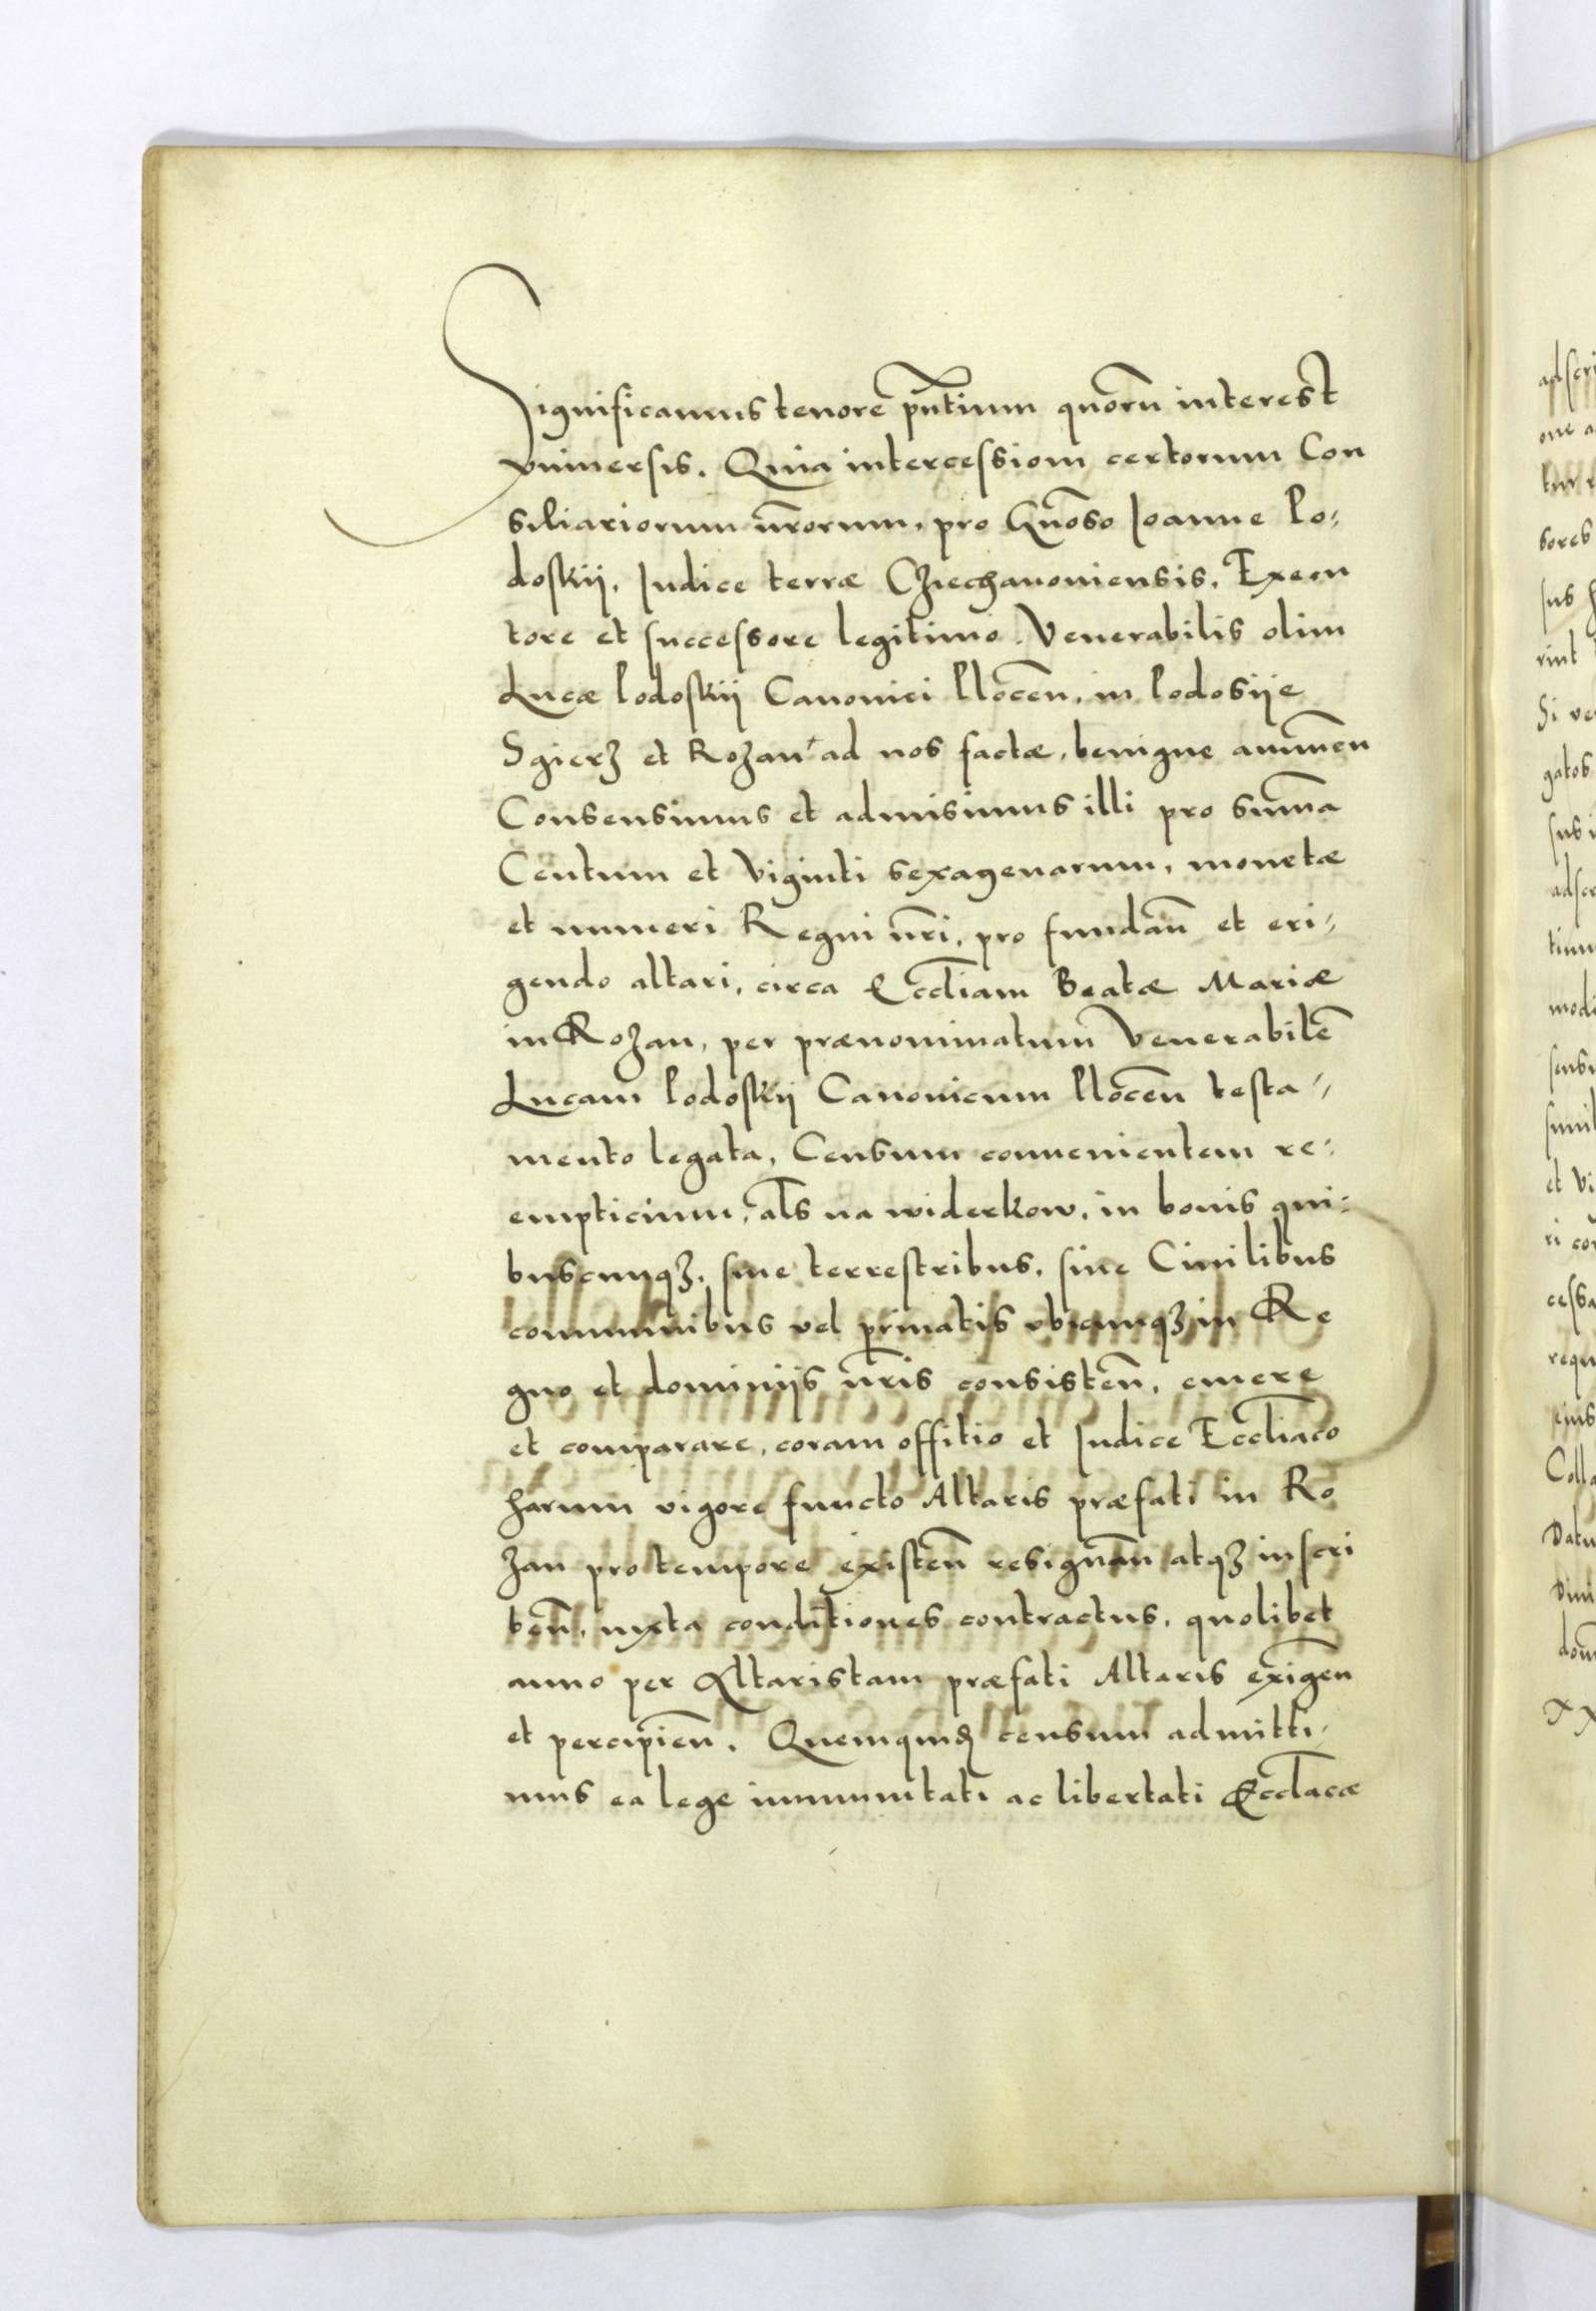 Significamus tenore pñtium quorũ interest
vniuersis. Quia intercessioni certorum Con
siliariorum ñrorum, pro Gñoso Ioanne Po⸗
doskij, Iudice terræ Cziechanoniensis, Execu
tore et successore legitimo Venerabilis olim
Lucæ Podoskij Canonici Plocen̄. in Podosije
Sgierz et Rozan ad nos factæ, benigne annuen̄
Consensimus et admisimus illi pro summa
Centum et viginti sexagenarum, monetæ
et numeri Regni ñri, pro fundan̄ et eri⸗
gendo altari, circa Eccĺiam Beatæ Mariæ
in Rozan, per prænominatum Venerabilē
Lucam Podoskij Canonicum Plocen̄ testa⸗
mento legata, Censum conuenientem re⸗
empticium, als na widerkow, in bonis qui⸗
buscunqꝫ, siue terrestribus, siue Ciuilibus
communibus vel priuatis vbicunqꝫ in Re
gno et dominijs ñris consisten̄, emere
et comparare, coram offitio et Iudice Eccĺiaco
harum vigore functo Altaris præfati in Ro
zan pro tempore existen̄ resignan̄ atqꝫ inscri
ben̄, iuxta conditiones contractus, quolibet
anno per Altaristam præfati Altaris exigen̄
et percipien̄. Quemquidē censum admitti⸗
mus ea lege immunitati ac libertati Eccĺiacæ